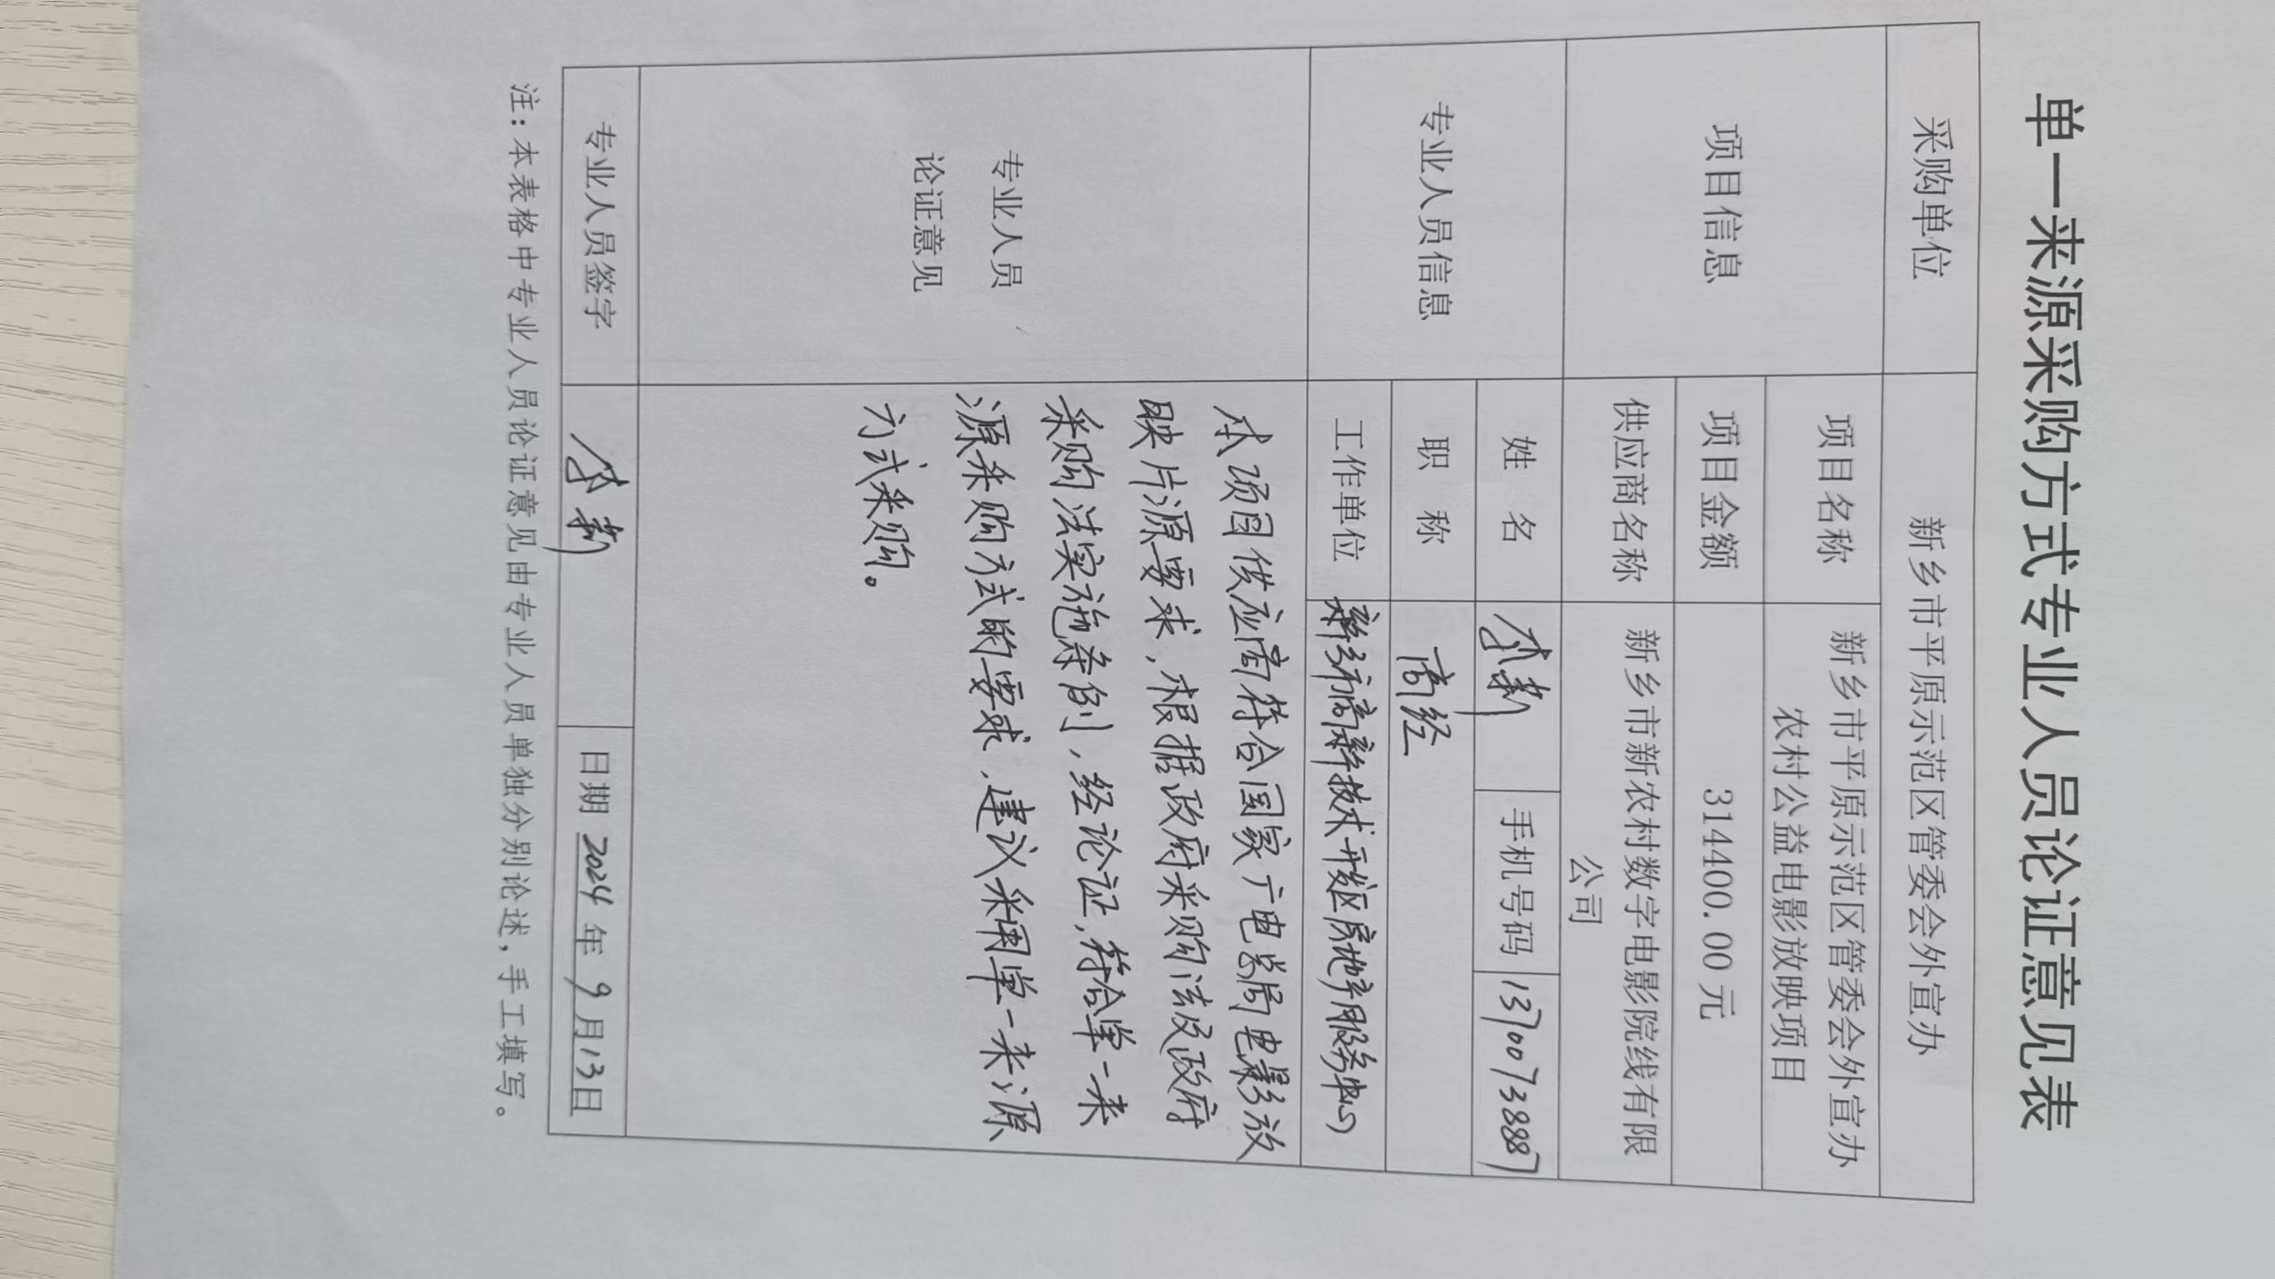 单一来源采购方式专业人员论证意见表
采购单位 新乡市平原示范区管委会外宣办
项目信息 项目名称 新乡市平原示范区管委会外宣办
农村公益电影放映项目
项目金额 314400.00 元
供应商名称 新乡市新农村数字电影院线有限
公司
专业人员信息 姓 名 李莉 手机号码 1370073887
职 称 高经
工作单位 新乡市高新技术开发区房地产服务中心
专业人员
论证意见
本项目供应商符合国家广电总局电影放
映片源要求,根据政府采购法及政府
采购法实施条例,经论证,符合单一来
源采购方式的要求,建议采用单一来源
方式采购。
专业人员签字 李莉 日期 2024 年 9 月 13 日
注:本表格中专业人员论证意见由专业人员单独分别论述,手工填写。